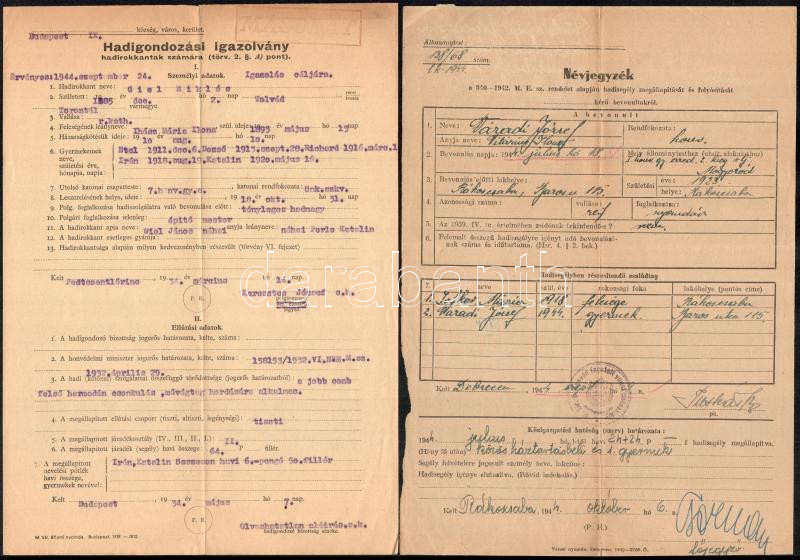 Budapest IX. község, város, kerület.
Hadigondozási igazolvány
hadirokkantak számára (törv. 2. §. A) pont).
I.
Érvényes:1944.szeptember 24. Személyi adatok. Igazolás céljára.
1. Hadirokkant neve: Giel Miklós
2. Született: 1885 év dec. hó 2. nap Tolvád
Torontál vármegye.
3. Vallása: r.kath.
4. Feleségének leányneve: Ihász Mária Ilona szül. ideje: 1893 május 13
5. Házasságkötésük ideje: 10 aug. 10.
6. Gyermekeinek neve, születési éve, hónapja, napja:
Etel 1911.dec.6.Dezső 1913.szept.28.Richard 1916.márc.1
Irén 1918.aug.19.Katalin 1920.május 16.
7. Utolsó katonai csapatteste: 7.honv.gy.e. katonai rendfokozata:
8. Leszerelésének helye, ideje: 18. okt. 31.
9. Polg. foglalkozása hadiszolgálatra való bevonulása előtt: tényleges hadnagy
10. Polgári foglalkozása jelenleg: építő mester
11. A hadirokkant apja neve: Giel János néhai anyja leányneve: néhai Perlo Katalin
12. A hadirokkant esetleges gyámja:
13. Hadirokkantsága idején milyen kedvezményben részesült (törvény VI. fejezet)
Kelt Pestszentlőrinc 34. március hó 14. nap.
Keresztes József s.k.
P. H.
II.
Ellátási adatok.
1. A hadigondozó bizottság jogerős határozata, kelte, száma:
2. A honvédelmi miniszter jogerős határozata, kelte, száma: 158153/1932.VI.NWM.M.sz.
1932.április 29.
3. A hadi (katonai) szolgálattal összefüggő törődöttsége (jogerős határozatból) a jobb comb
felső harmadán csonkulás ,művégtag hordására alkalmas.
4. A megállapított ellátási csoport (tiszti, altiszti, legénységi): tiszti
5. A megállapított járadékosztály (IV., III., II., I.): II.
6. A megállapított járadék (segély) havi összege: 64. P fillér.
7. A megállapított nevelési pótlék havi összege, gyermekek nevével:
Irén,Katalin összesen havi 6.-pengő 50.fillér
Kelt Budapest 34 május hó 7. nap.
P. H.
Olvashatatlan aláírás.s.k.
hadigondozó bizottság elnöke.
M. kir. állami nyomda. Budapest, 1933
Állománytest:
138/68 szám.
Névjegyzék
a 940—1942. M. E. sz. rendelet alapján hadisegély megállapítását és folyósítását
kérő bevonultakról.
A bevonult
1. Neve: Váradi József Rendfokozata: honv.
Anyja neve:
2. Bevonulás napja: 194 4. július hó 18. Mely állománytesthez (utal. alakulathoz)
Mogyoród
3. Bevonulás előtti lakhelye: Rákoscsaba, Baross u 115 Születési éve: 1923.
helye: Rákoscsaba
4. Azonosítási száma: vallása: ref foglalkozása: nyomdász
5. Az 1939. IV. tc. értelmében zsidónak tekintendő-e? nem.
6. Felemelt összegű hadisegélyre igényt adó bevonulásainak száma és időtartama. (Hsr. 4. §. 2. bek.)
Hadisegélyben részesítendő családtag
7. neve szül. év rokonsági foka lakóhelye (pontos címe)
1. Mária 1918. felesége Rákoscsaba
2. Váradi József 1944. gyermek Baross utca 115.
Kelt Debrecen 194 4
ph.
Közigazgatási hatóság (szerv) határozata:
194 4. július hó 1-től havi 24+24 P hadisegély megállapítva.
(Hány fő után) közös háztartásbeli és 1. gyermek
Segély felvételére jogosult személy neve, lakcíme:
Hadisegély igénye elutasítva. (Rövid indokolás.)
Kelt Rákoscsaba 194 4. október hó 6. n
(P. H.)
főjegyző
darabanth